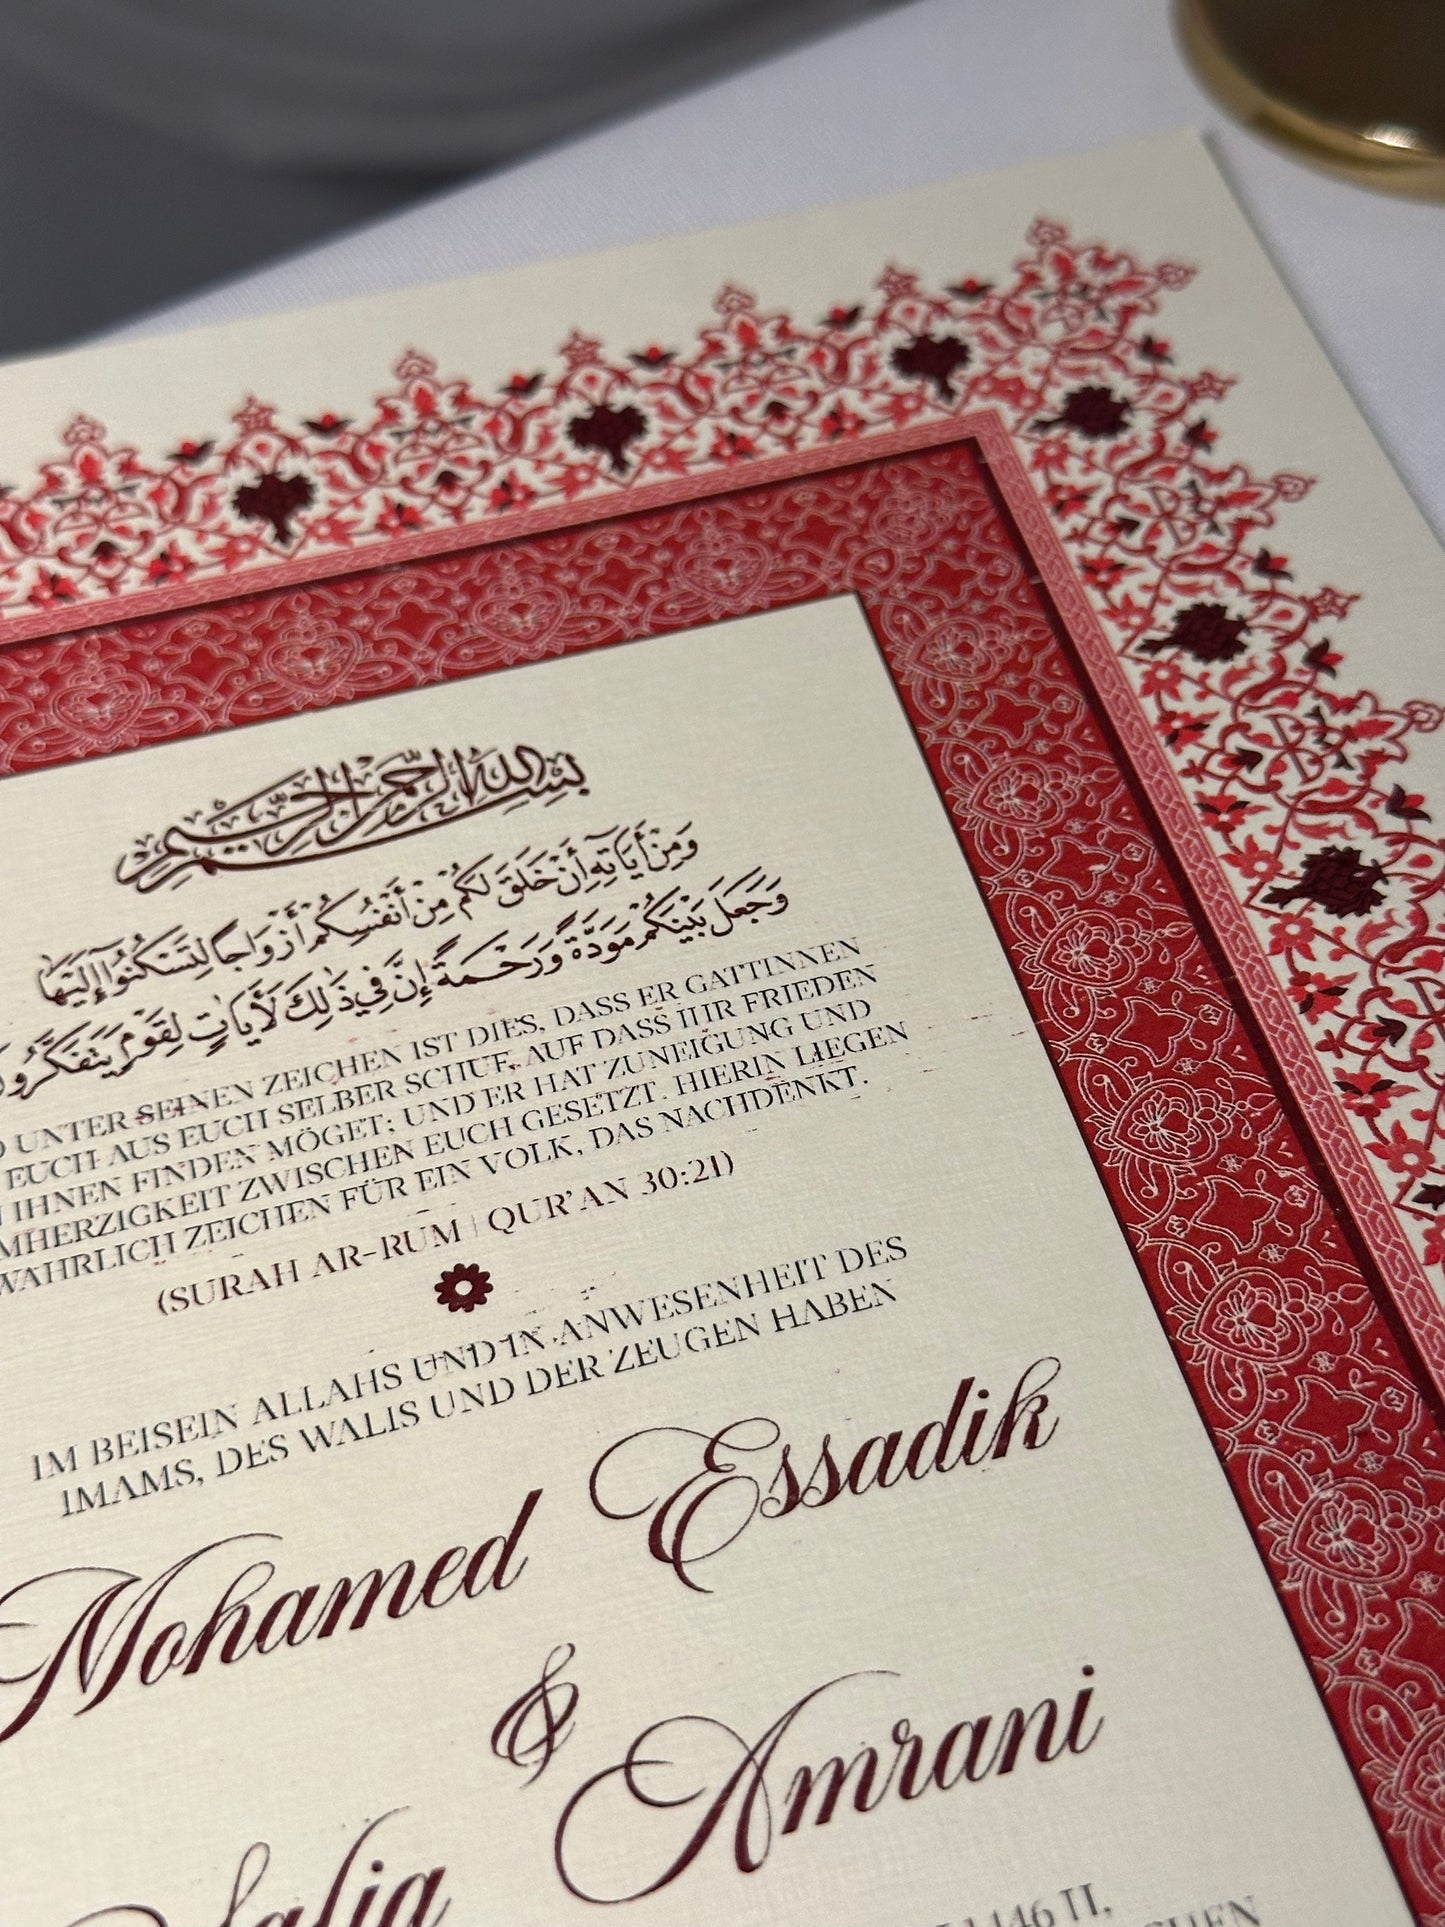 بسم الله الرحمن الرحيم
وَمِنْ أَيَاتِهِ أَنْ خَلَقَ لَكُمْ مِنْ أَنْفُسِكُمْ أَزْوَاجًا لِتَسْكُنُوا إِلَيْهَا
وَجَعَلَ بَيْنَكُمْ مَوَدَّةً وَرَحْمَةً إِنَّ فِي ذَٰلِكَ لَأَيَاتٍ لِقَوْمٍ يَتَفَكَّرُو
UNTER SEINEN ZEICHEN IST DIES, DASS ER GATTINNEN
EUCH AUS EUCH SELBER SCHUF, AUF DASS IHR FRIEDEN
IHNEN FINDEN MÖGET; UND ER HAT ZUNEIGUNG UND
MHERZIGKEIT ZWISCHEN EUCH GESETZT. HIERIN LIEGEN
WAHRLICH ZEICHEN FÜR EIN VOLK, DAS NACHDENKT.
(SURAH AR-RUM | QUR'AN 30:21)
IM BEISEIN ALLAHS UND IN ANWESENHEIT DES
IMAMS, DES WALIS UND DER ZEUGEN HABEN
Mohamed Essadik
&
Safia Amrani
1146 H,